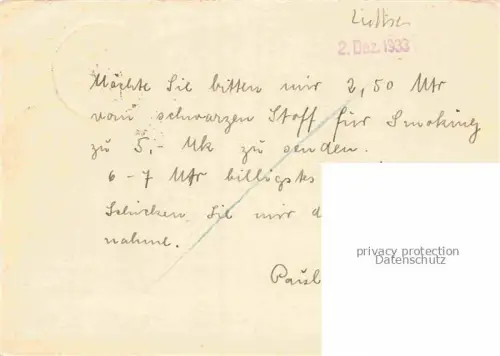 2. Dez. 1933
Möchte Sie bitten mir 2,50 Mtr
vom schwarzen Stoff für Smoking
zu 5,- Mk zu senden.
6-7 Mtr billigstes
Schicken Sie mir d
nahme.
privacy protection
Datenschutz